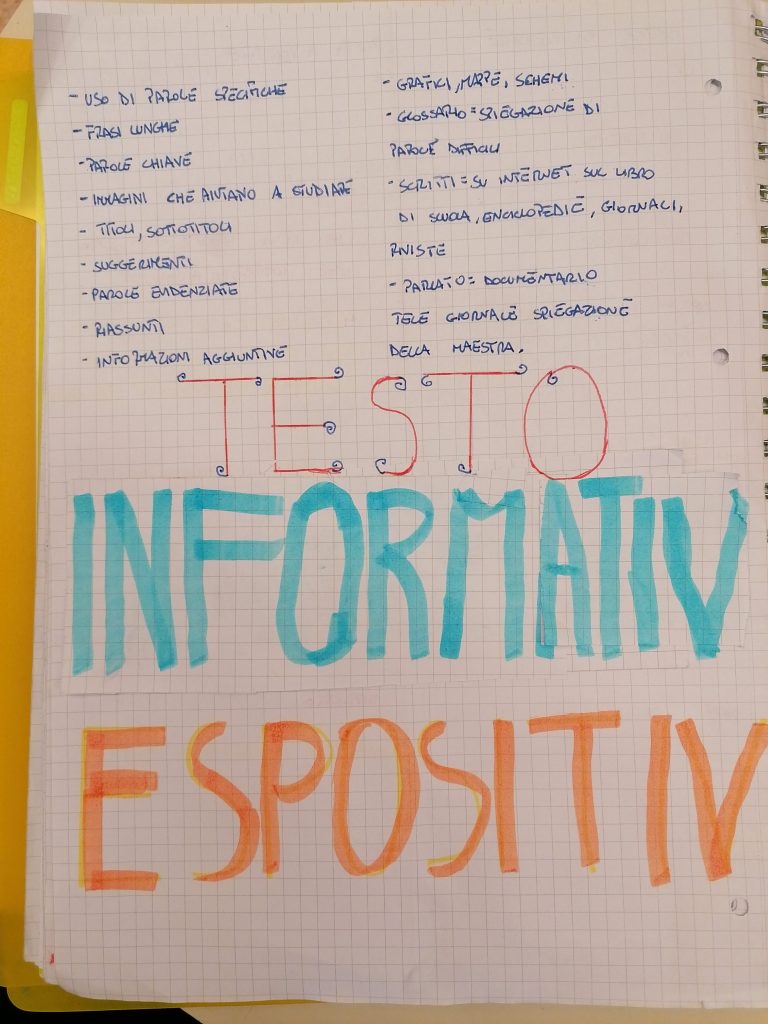 - USO DI PAROLE SPECIFICHE
- FRASI LUNGHE
- PAROLE CHIAVE
- IMMAGINI CHE AIUTANO A STUDIARE
- TITOLI, SOTTOTITOLI
- SUGGERIMENTI
- PAROLE EVIDENZIATE
- RIASSUNTI
- INFORMAZIONI AGGIUNTIVE
- GRAFICI, MAPPE, SCHEMI
- GLOSSARIO = SPIEGAZIONE DI
PAROLE DIFFICILI
- SCRITTI = SU INTERNET SUL LIBRO
DI SCUOLA, ENCICLOPEDIE, GIORNALI,
RIVISTE
- PARLATO = DOCUMENTARIO
TELE GIORNALE SPIEGAZIONE
DELLA MAESTRA.
TESTO
INFORMATIV
ESPOSITIV